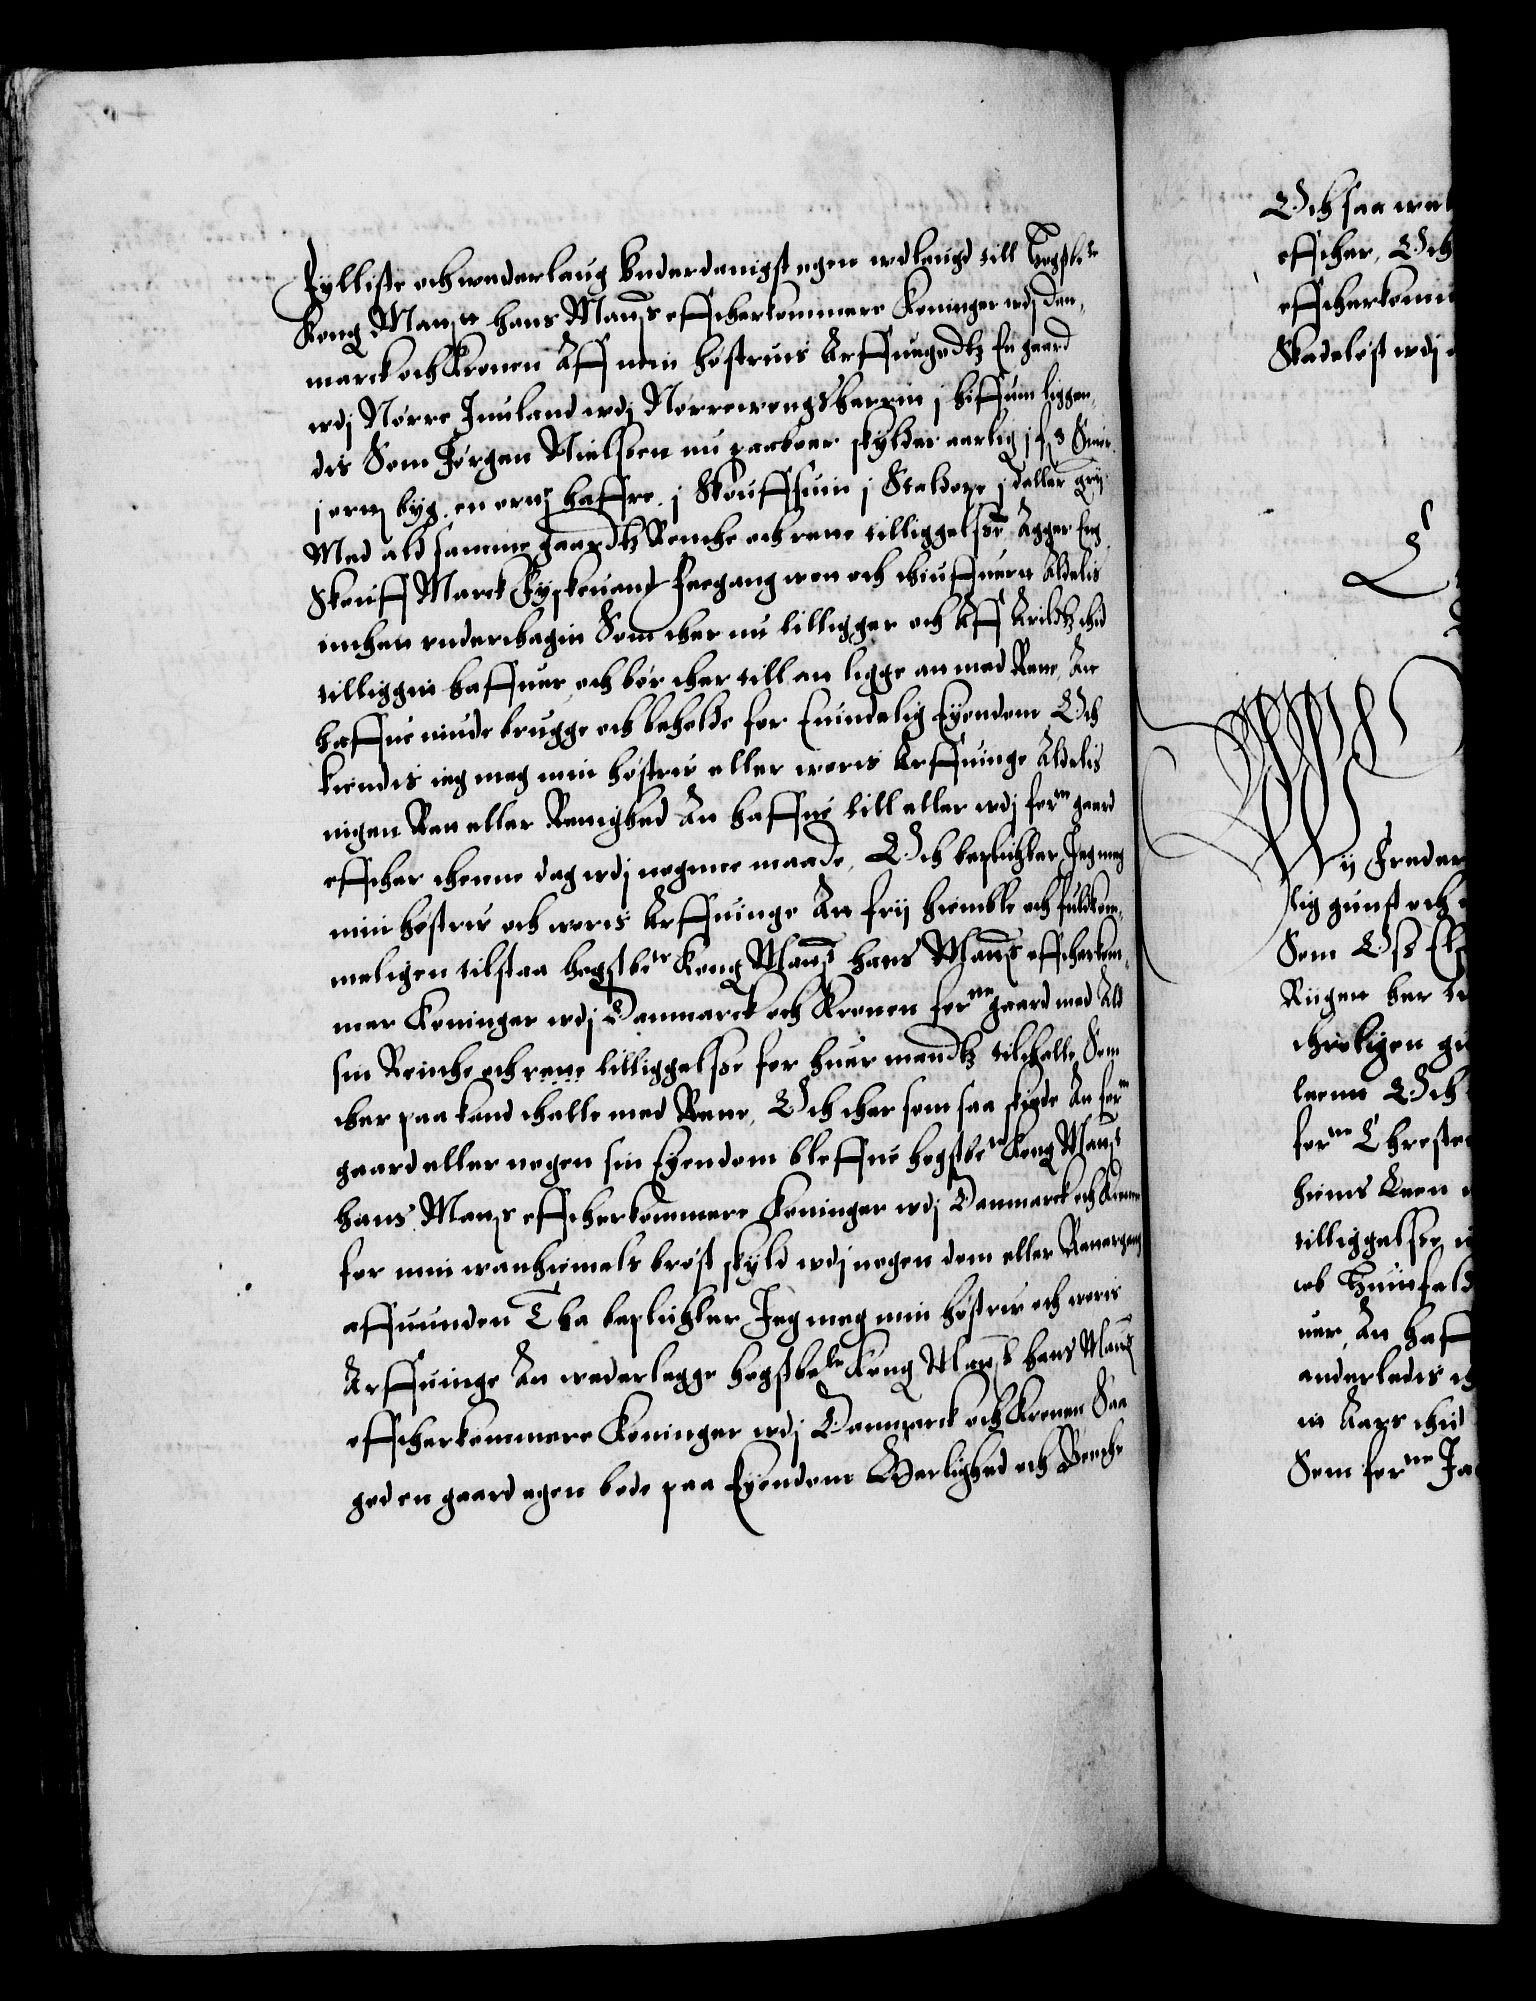 Fylliste och wederlaug Underdanigst egen udlaugd till Høgstbete
Kong Mayst hans Mayts effterkommere Koninger udj Dan,
marck och Kronen Aff min høstruis Arffuegodtz En gaard
udj Nørre Jutland udj Nørrewongsherrit j biffum liggen,
dis Som Jørgen Nielssen nu paaboer skylder aarlig
j ørtj byg, en ørtj haffre, j Skouffsuin j Staldøxe j daller grij
Med ald samme gaardtz Rente och rette tilliggelsse Agger Eng
Skouff Marck Fyskeuand Feegang wott och thiuffuert Aldelis
inthet undertagit Som ther nu tilligger och Aff Arildtz tid
tilliggit haffuer, och bør ther till att ligge att med Rette, Att
haffue niude brugge och beholde for Euindelig Eyendom Och
kiendis ieg meg min høstru eller woris Arffuinge Aldelis
ingen Ret eller Rettighed At haffue till eller udj forne gaard
effther thenne dag udj nogen maade, Och beplichter Jeg meg
min høstru och woris Arffuinge At frij hiemble och fuldkom,
meligen tilstaa høgstbete Kong Mayst hans Mayts effterkom,
mer Koninger udj Danmarck och Kronen forne gaard med Ald
sin Reinthe och rette tilliggelsse for huer mandtz tilthalle Som
ther paa kand thalle med Rette, Och ther som saa skede At forne
gaard eller nogen sin Eyendom bleffue høgstbete Kong Mayst
hans Mayts effterkommere Koninger udj Danmarck och Kronen
for min wanhiemels brøst skyld udj nogen dom eller Rettergang
affuunden Tha beplichter Jeg meg min høstru och woris
Arffuinge At wederlegge høgstbete Kong Mayst hans Mayts
effterkommere Koninger udj Danmarck och Kronen Saa
god en gaard egen bode paa Eyendom Herlighed och Renthe
Och saa uel
effther, Och
effterkomm
Skadeløst udj
Wij Freder
lig gunst och
Som Oss Els
Riigen her
leenn Och
forne Christen
tilliggelsse
uer, At haff
anderledis
Som forne Ja